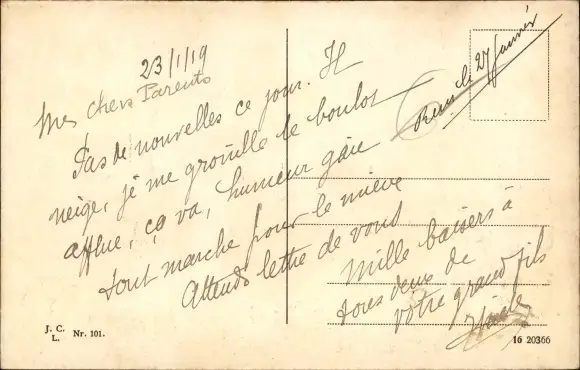 23/1/19
Mes chers Parents
Pas de nouvelles ce jour. Il
neige, je me grouille le boulot
afflue, ça va, humeur gaie
tout marche pour le mieux
Attends lettre de vous
Mille baisers à
tous deux de
votre grand fils
Reçu le 27 janvier
J. C.
L.
Nr. 101.
16 20366